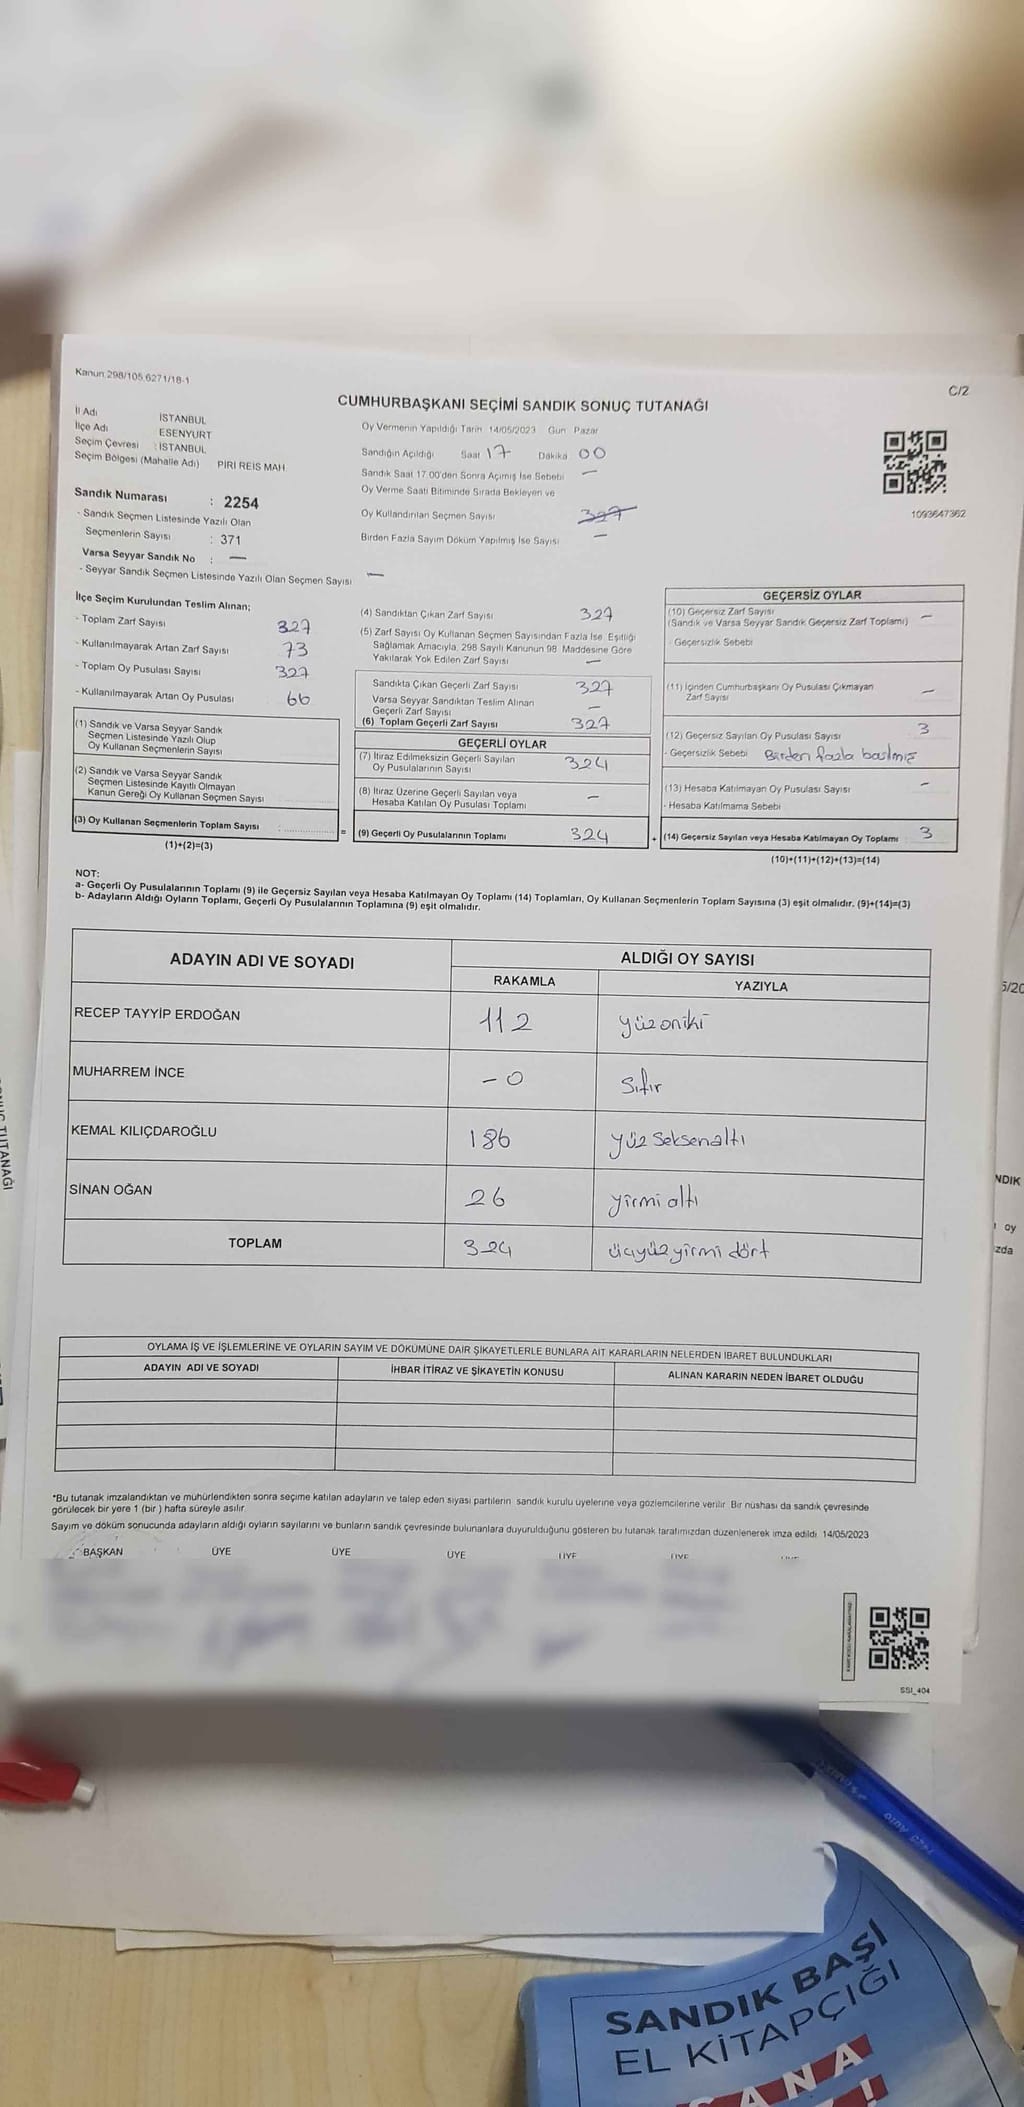 Kanun.298/105.6271/18-1
C/2
CUMHURBAŞKANI SEÇİMİ SANDIK SONUÇ TUTANAĞI
İl Adı İSTANBUL
İlçe Adı ESENYURT
Seçim Çevresi : İSTANBUL
Seçim Bölgesi (Mahalle Adı) PİRİ REİS MAH.
Sandık Numarası : 2254
- Sandık Seçmen Listesinde Yazılı Olan
Seçmenlerin Sayısı : 371
Varsa Seyyar Sandık No : —
- Seyyar Sandık Seçmen Listesinde Yazılı Olan Seçmen Sayısı —
Oy Vermenin Yapıldığı Tarih 14/05/2023 Gün Pazar
Sandığın Açıldığı Saat 17 Dakika 00
Sandık Saat 17.00'den Sonra Açılmış İse Sebebi —
Oy Verme Saati Bitiminde Sırada Bekleyen ve
Oy Kullandırılan Seçmen Sayısı 327
Birden Fazla Sayım Döküm Yapılmış İse Sayısı —
1093647362
İlçe Seçim Kurulundan Teslim Alınan;
- Toplam Zarf Sayısı 327
- Kullanılmayarak Artan Zarf Sayısı 73
- Toplam Oy Pusulası Sayısı 327
- Kullanılmayarak Artan Oy Pusulası 66
(1) Sandık ve Varsa Seyyar Sandık
Seçmen Listesinde Yazılı Olup
Oy Kullanan Seçmenlerin Sayısı
(2) Sandık ve Varsa Seyyar Sandık
Seçmen Listesinde Kayıtlı Olmayan
Kanun Gereği Oy Kullanan Seçmen Sayısı
(3) Oy Kullanan Seçmenlerin Toplam Sayısı :
(1)+(2)=(3)
(4) Sandıktan Çıkan Zarf Sayısı 327
(5) Zarf Sayısı Oy Kullanan Seçmen Sayısından Fazla İse, Eşitliği
Sağlamak Amacıyla, 298 Sayılı Kanunun 98. Maddesine Göre
Yakılarak Yok Edilen Zarf Sayısı —
Sandıkta Çıkan Geçerli Zarf Sayısı 327
Varsa Seyyar Sandıktan Teslim Alınan
Geçerli Zarf Sayısı —
(6) Toplam Geçerli Zarf Sayısı 327
GEÇERLİ OYLAR
(7) İtiraz Edilmeksizin Geçerli Sayılan
Oy Pusulalarının Sayısı 324
(8) İtiraz Üzerine Geçerli Sayılan veya
Hesaba Katılan Oy Pusulası Toplamı —
= (9) Geçerli Oy Pusulalarının Toplamı 324
GEÇERSİZ OYLAR
(10) Geçersiz Zarf Sayısı
(Sandık ve Varsa Seyyar Sandık Geçersiz Zarf Toplamı) —
- Geçersizlik Sebebi
(11) İçinden Cumhurbaşkanı Oy Pusulası Çıkmayan
Zarf Sayısı —
(12) Geçersiz Sayılan Oy Pusulası Sayısı 3
- Geçersizlik Sebebi Birden fazla basılmış
(13) Hesaba Katılmayan Oy Pusulası Sayısı —
- Hesaba Katılmama Sebebi
+ (14) Geçersiz Sayılan veya Hesaba Katılmayan Oy Toplamı 3
(10)+(11)+(12)+(13)=(14)
NOT:
a- Geçerli Oy Pusulalarının Toplamı (9) ile Geçersiz Sayılan veya Hesaba Katılmayan Oy Toplamı (14) Toplamları, Oy Kullanan Seçmenlerin Toplam Sayısına (3) eşit olmalıdır. (9)+(14)=(3)
b- Adayların Aldığı Oyların Toplamı, Geçerli Oy Pusulalarının Toplamına (9) eşit olmalıdır.
ADAYIN ADI VE SOYADI ALDIĞI OY SAYISI
RAKAMLA YAZIYLA
RECEP TAYYİP ERDOĞAN 112 yüzoniki
MUHARREM İNCE - 0 Sıfır
KEMAL KILIÇDAROĞLU 186 yüz seksenaltı
SİNAN OĞAN 26 yirmi altı
TOPLAM 324 üçyüzyirmi dört
OYLAMA İŞ VE İŞLEMLERİNE VE OYLARIN SAYIM VE DÖKÜMÜNE DAİR ŞİKAYETLERLE BUNLARA AİT KARARLARIN NELERDEN İBARET BULUNDUKLARI
ADAYIN ADI VE SOYADI İHBAR İTİRAZ VE ŞİKAYETİN KONUSU ALINAN KARARIN NEDEN İBARET OLDUĞU
*Bu tutanak imzalandıktan ve mühürlendikten sonra seçime katılan adayların ve talep eden siyasi partilerin sandık kurulu üyelerine veya gözlemcilerine verilir. Bir nüshası da sandık çevresinde
görülecek bir yere 1 (bir ) hafta süreyle asılır.
Sayım ve döküm sonucunda adayların aldığı oyların sayılarını ve bunların sandık çevresinde bulunanlara duyurulduğunu gösteren bu tutanak tarafımızdan düzenlenerek imza edildi. 14/05/2023
BAŞKAN ÜYE ÜYE ÜYE ÜYE ÜYE
SSI_404
TUTANAĞI
5/20
NDIK
oy
zda
SANDIK BAŞI
EL KİTAPÇIĞI
SANA